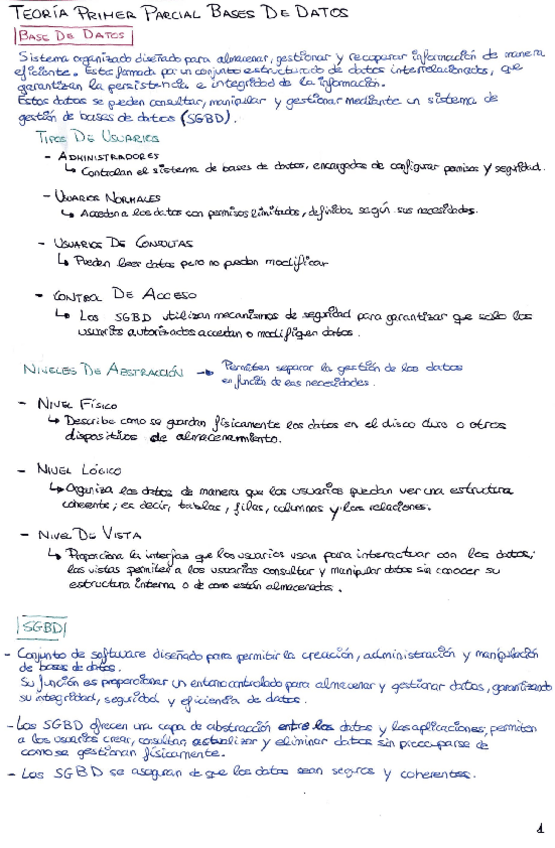 TEORÍA PRIMER PARCIAL BASES DE DATOS
BASE DE DATOS
Sistema organizado diseñado para almacenar, gestionar y recuperar información de manera
eficiente. Esta formada por un conjunto estructurado de datos interrelacionados, que
garantizan la persistencia e integridad de la información.
Estos datos se pueden consultar, manipular y gestionar mediante un sistema de
gestión de bases de datos (SGBD).
TIPOS DE USUARIOS
- ADMINISTRADORES
↳ Controlan el sistema de bases de datos, encargados de configurar permisos y seguridad.
- USUARIOS NORMALES
↳ Acceden a los datos con permisos limitados, definidos según sus necesidades.
- USUARIOS DE CONSULTAS
↳ Pueden leer datos pero no pueden modificar
- CONTROL DE ACCESO
↳ Los SGBD utilizan mecanismos de seguridad para garantizar que solo los
usuarios autorizados accedan o modifiquen datos.
NIVELES DE ABSTRACCIÓN → Permiten separar la gestión de los datos
en función de las necesidades.
- NIVEL FÍSICO
↳ Describe como se guardan físicamente los datos en el disco duro o otros
dispositivos de almacenamiento.
- NIVEL LÓGICO
↳ Organiza los datos de manera que los usuarios puedan ver una estructura
coherente; es decir, tablas, filas, columnas y las relaciones.
- NIVEL DE VISTA
↳ Proporciona la interfaz que los usuarios usan para interactuar con los datos;
las vistas permiten a los usuarios consultar y manipular datos sin conocer su
estructura interna o de como están almacenados.
SGBD
- Conjunto de software diseñado para permitir la creación, administración y manipulación
de bases de datos.
Su función es proporcionar un entorno controlado para almacenar y gestionar datos, garantizando
su integridad, seguridad y eficiencia de datos.
- Los SGBD ofrecen una capa de abstracción entre los datos y las aplicaciones, permiten
a los usuarios crear, consultar, actualizar y eliminar datos sin preocuparse de
como se gestionan físicamente.
- Los SGBD se aseguran de que los datos sean seguros y coherentes.
1